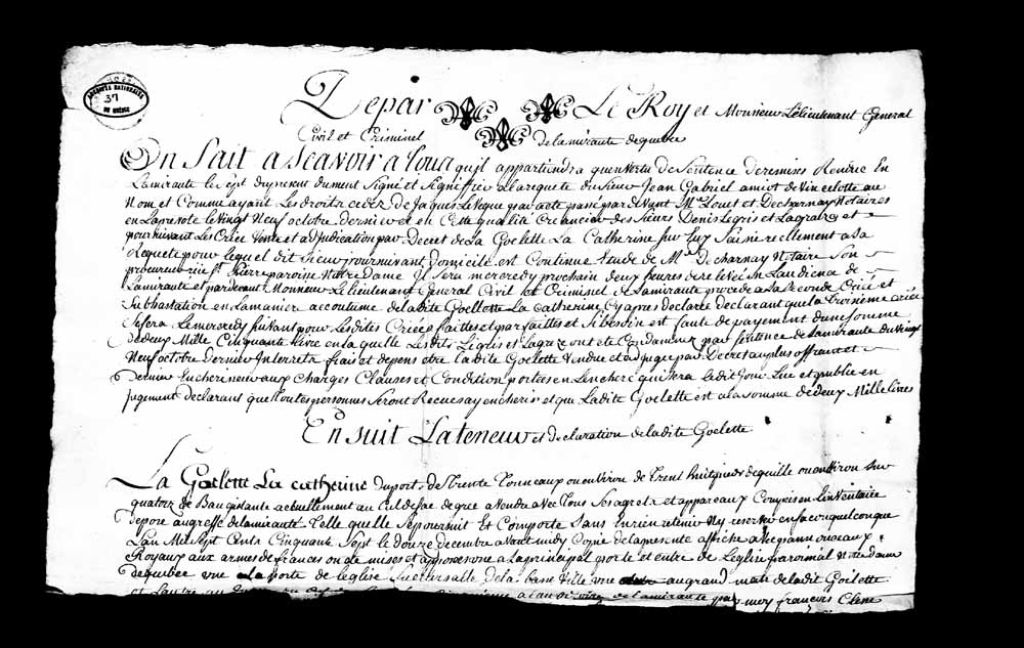 ARCHIVES NATIONALES
37
DU QUÉBEC
Depar Le Roy et Monsieur Lelieutenant General
Civil et Criminel de lamirauté dequebec
On fait a Scavoir a Tous quil appartiendra quenvertu de Sentence deremises Rendue En
Lamirauté le sept dupresent dument Signé et Signiffié alarequete dusieur Jean Gabriel amiot de vincelotte au
Nom et Comme ayant Les droits cedez de Jaques Leveque par acte passé par devant Me Louet et Decharnay Notaires
en La prevoté le vingt Neuf octobre dernier et en Cette qualité Creancier des Sieurs Denis Legris et Lagroix et
pourSuivant Les Criée Vente et adjudication par Decret de La Goelette La Catherine sur Luy Saisie reellement a Sa
Requete pour lequel dit Sieur poursuivant domicile est Continué Etude de Me Decharnay Notaire Son
procureur St Pierre paroisse Notre Dame Il Sera mercredy prochain deux heures de relevée En Laudience de
Lamirauté et pardevant Monsieur Le lieutenant General Civil et Criminel de Lamirauté procedé a La Seconde Criée et
Subhastation en Lamanier accoutumé de ladite Goellette La Catherine Cy apres declarée declarant que la troisieme criée
Se fera Lemercredy suivant pour Lesdites Criées faittes et parfaittes et Si besoin est faute de payement dune Somme
de deux Mille Cinquante Livre en laquelle Lesdits Legris et Lagroix ont eté Condamnez par Sentence de lamirauté du vingt
Neuf octobre dernier Interrets frais et depens etre Ladite Goelette vendue et adjugée par Decret au plus offrant et
Dernier Encherisseur aux Charges Clauses et Condition portées en Lenchere qui Sera ledit Jour Lue et publiée en
jugement declarant que Toutes personnes Seront Recues ay encherir et que Ladite Goelette est a la Somme de deux Mille Livres
En suit La teneur et declaration de ladite Goelette
La Goellette La catherine du port de Trente Tonneaux ou environ de Trent huit pieds de quille ou environ sur
quatorze de Bau gisante actuellement au Cul de Sac de gré a vendre avec Tous Ses agrets et appareaux Compris en Linventaire
deposé au greffe de lamirauté Telle quelle Se poursuit Et Comporte Sans En rien retenir Ny reserver en facon quelconque
Lan Mil Sept Cents Cinquante Sept le douze decembre avant midy Copie de la presente affiche avec panonceaux
Royaux aux armes de france ont eté mises et apposés une a La principal porte et entrée de Leglise paroissial Notre dame
de quebec une a La porte de Leglise Succursalle de la basse Ville une au grand mats de ladit Goelette
de lamirauté par moy francois Clesse